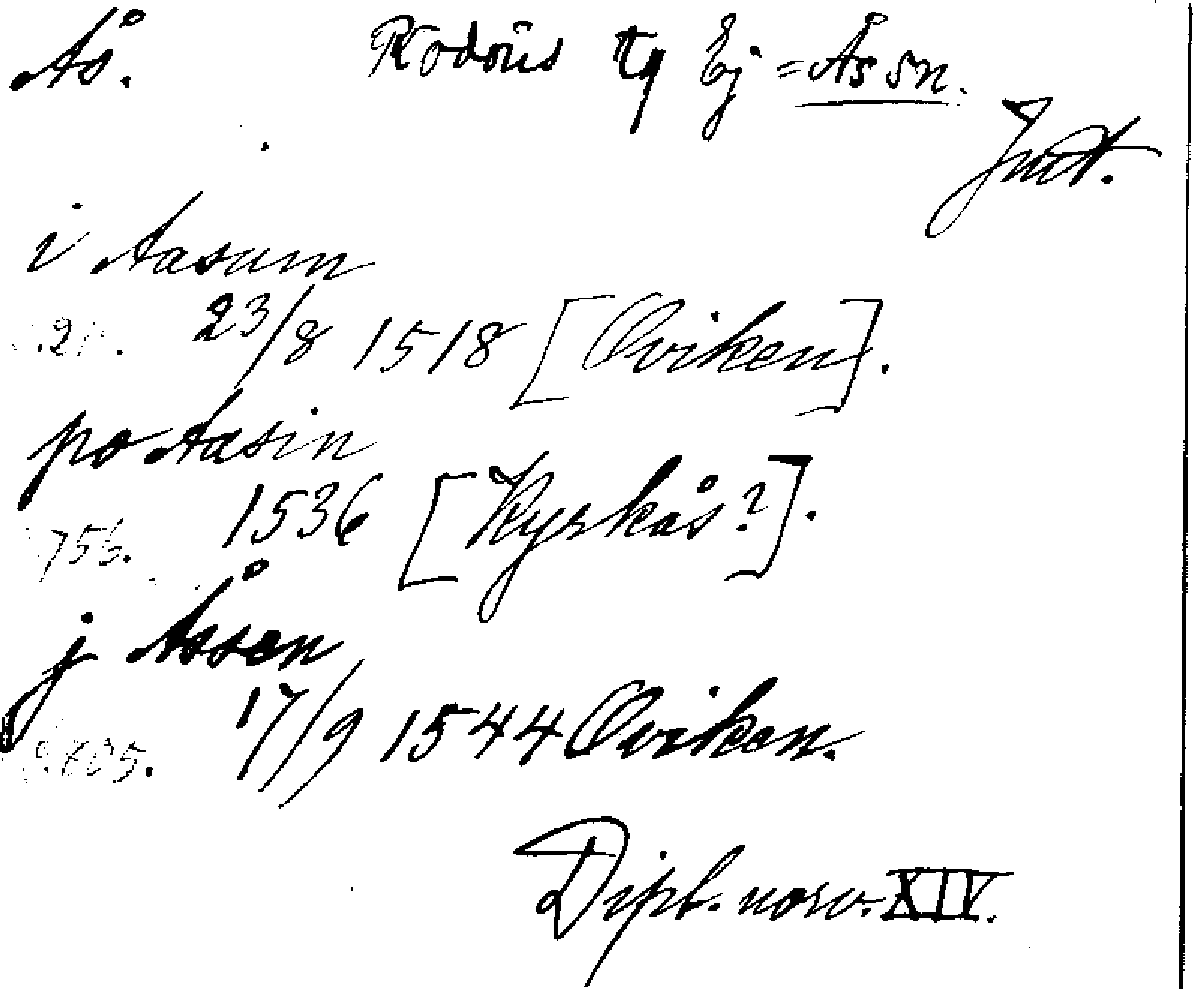 Ås. Rödöns tg Ej = Åssn.
Jmt.
i Aasum
23/8 1518 [Oviken].
po Aasin
1536 [Kyrkås?].
j Åssen
17/9 1544 Oviken.
Dipl. norv. XIV.